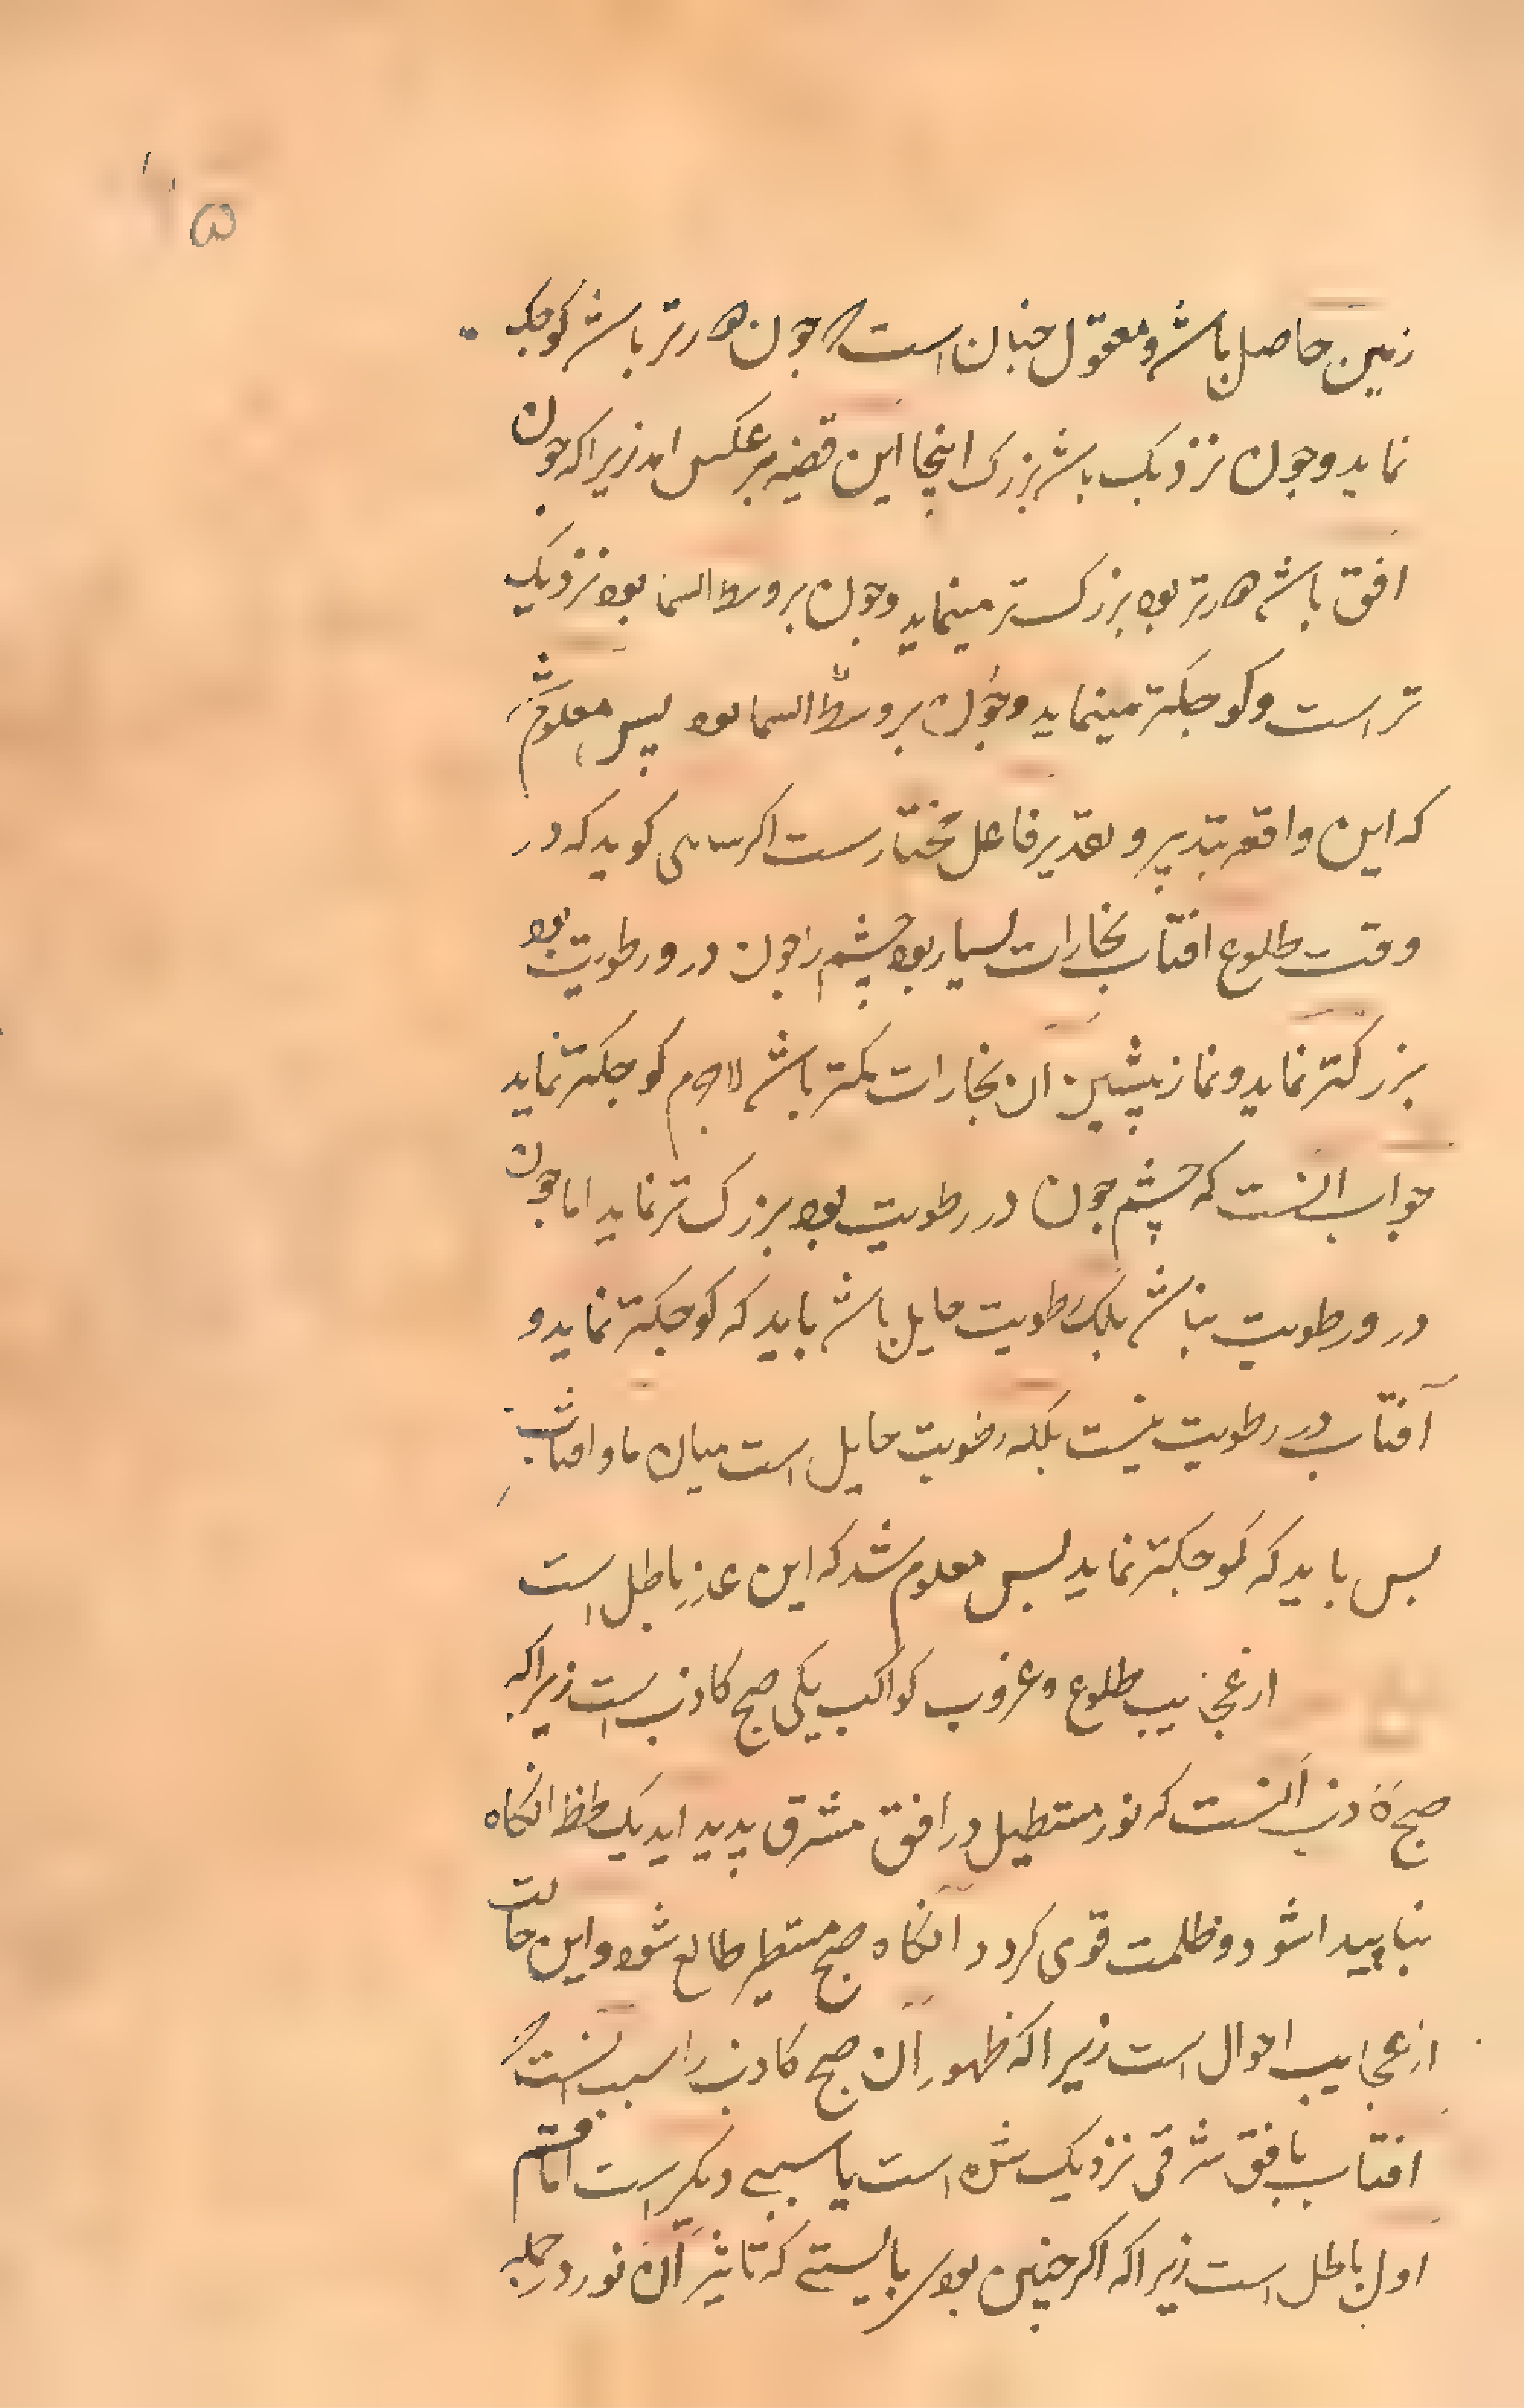 ۵
زمین حاصل باشد و معقول جنان است که جون دورتر باشد کوجک
نماید و جون نزدیک باشد بزرک اینجا این قضیه برعکس امد زیرا که جون
افق باشد دورتر بود بزرک تر مینماید و جون بر وسط السما بود نزدیک
تر است و کوجکتر مینماید و جون بر وسط السما بود پس معلوم شد
که این واقعه بتدبیر و تقدیر فاعل مختارست اکر کوید که در
وقت طلوع افتاب بخارات بسیار بود جشم را جون در و رطوبت بود
بزرکتر نماید و نماز پیشین ان بخارات کمتر باشد لاجرم کوجکتر نماید
جواب انست که جشم جون در رطوبت بود بزرک تر نماید اما جون
در و رطوبت نباشد بلک رطوبت حایل باشد باید که کوجکتر نماید و
آفتاب در رطوبت نیست بلکه رطوبت حایل است میان ما و افتاب
بس باید که کوجکتر نماید بس معلوم شد که این عذر باطل است
از عجایب طلوع و غروب کواکب یکی صبح کاذب است زیرا که
صبح کاذب انست که نور مستطیل در افق مشرق پدید اید یک لحظه انکاه
ناپیدا شود و ظلمت قوی کردد آنکاه صبح مستطیر طالع شود و این حالت
از عجایب احوال است زیرا که ظهور آن صبح کاذب را سبب انست که
افتاب بافق شرقی نزدیک شده است یا سببی دیکر است اما قسم
اول باطل است زیرا که اکر جنین بودی بایستی که تاثیر آن نور در جمله